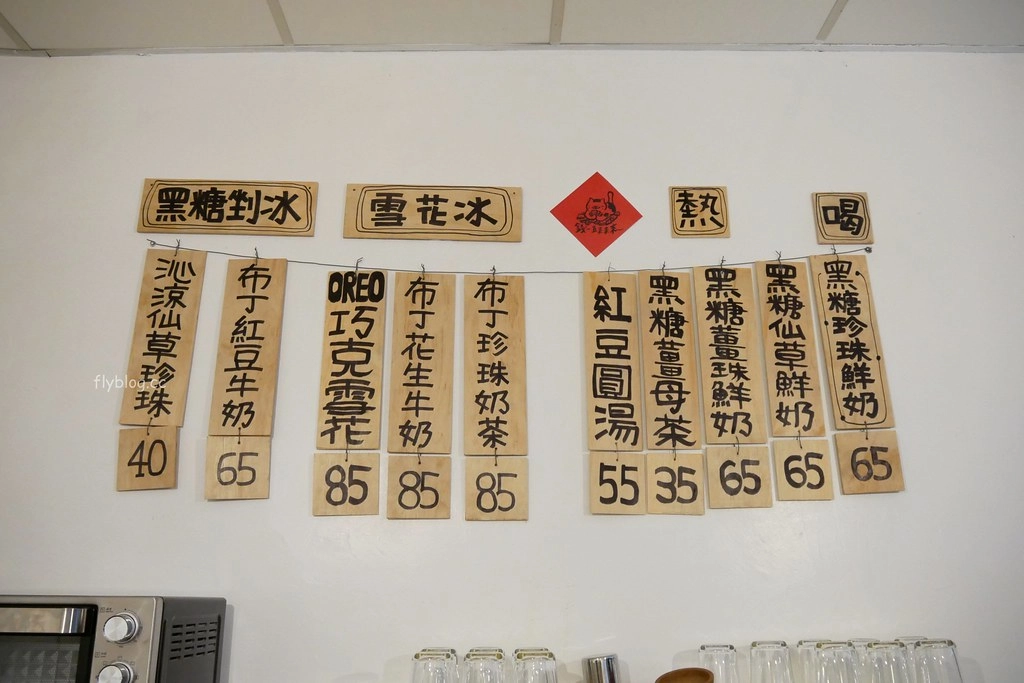 黑糖剉冰
沁涼仙草珍珠
40
布丁紅豆牛奶
65
雪花冰
OREO巧克雪花
85
布丁花生牛奶
85
布丁珍珠奶茶
85
熱
喝
紅豆圓湯
55
黑糖薑母茶
35
黑糖薑珠鮮奶
65
黑糖仙草鮮奶
65
黑糖珍珠鮮奶
65
flyblog.cc